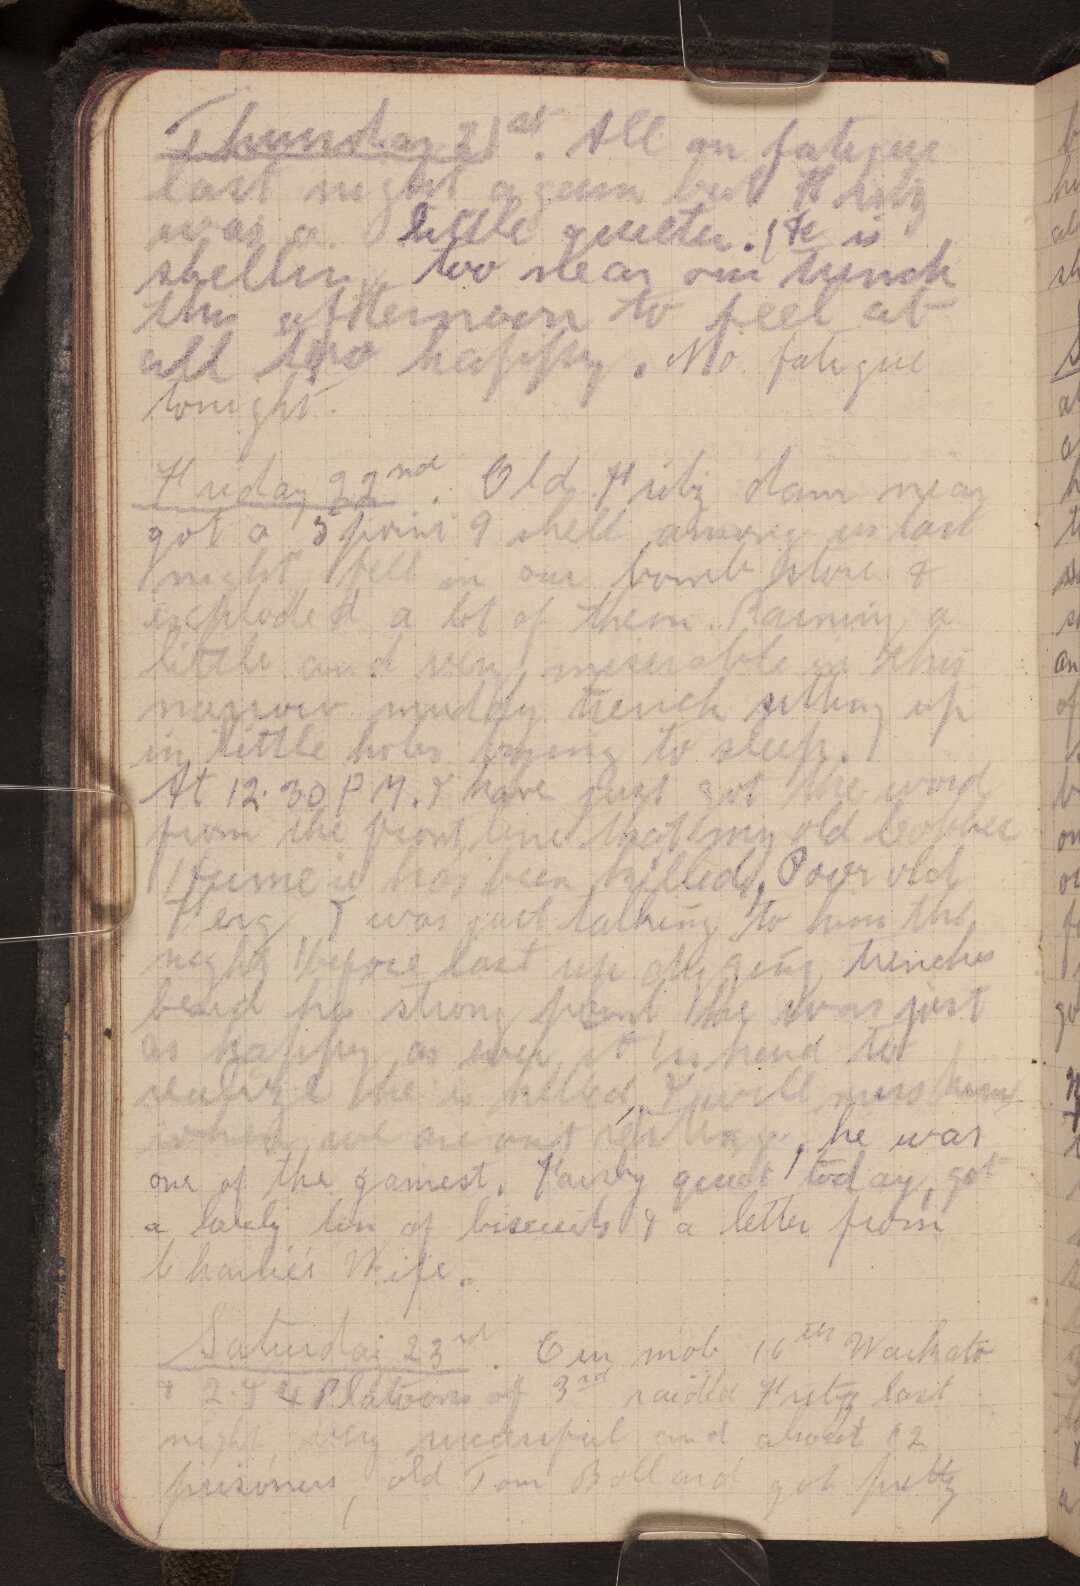 Thursday 21st. All on fatigue
last night again but Fritz
was a little quieter. He is
shelling too near our trench
this afternoon to feel at
all too happy. No fatigue
tonight.
Friday 22nd. Old Fritz dam near
got a 5 point 9 shell among us last
night, fell in our bomb store &
exploded a lot of them. Raining a
little and very miserable in this
narrow muddy trench sitting up
in little holes trying to sleep.
At 12.30 P.M. I have just got the word
from the front line that my old cobber
has been killed. Poor old
Ferg I was just talking to him the
night before last up digging trenches
he strong point he was just
as happy as ever it is hard to
realize he is killed, I will miss him
when we are out resting, he was
one of the gamest. Fairly quiet today, got
a lovely tin of biscuits & a letter from
Charlie's Wife.
Saturday 23rd. Our mob 16th Waikato
& 2 & 4 Platoons of 3rd raided Fritz last
night very successful and about 12
prisoners, old Tom Bollard got pretty